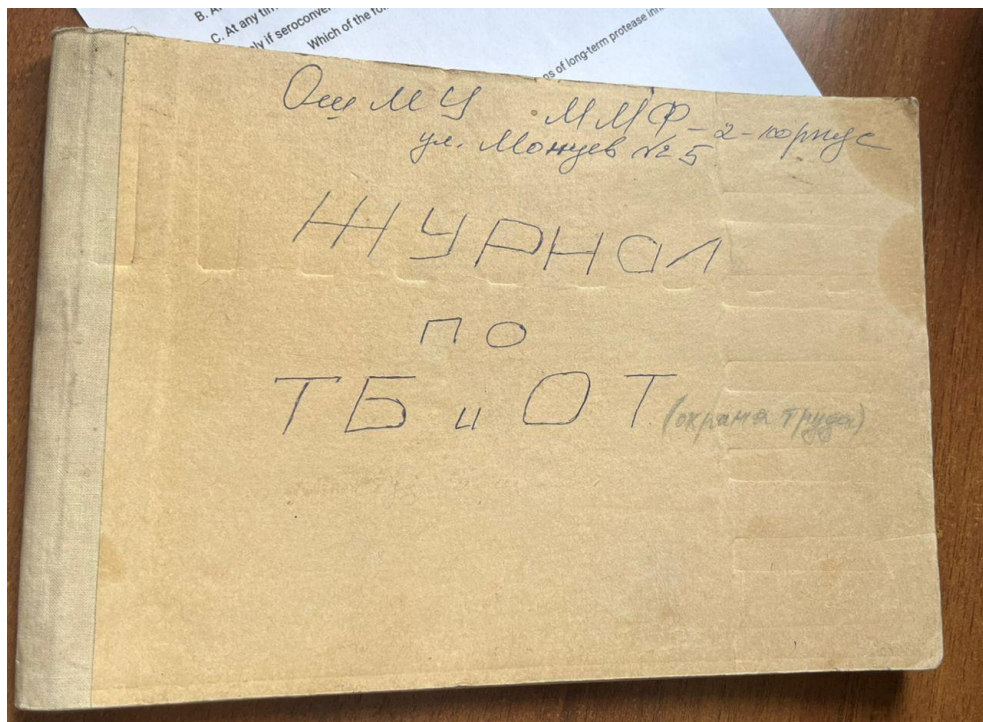 B. A
C. At any tim
ly if seroconve
Which of the fo
ns of long-term protease inhi
ОшМУ ММФ-2-корпус
ул. Монуев №5
ЖУРНАЛ
ПО
ТБ и ОТ (охрана труда)